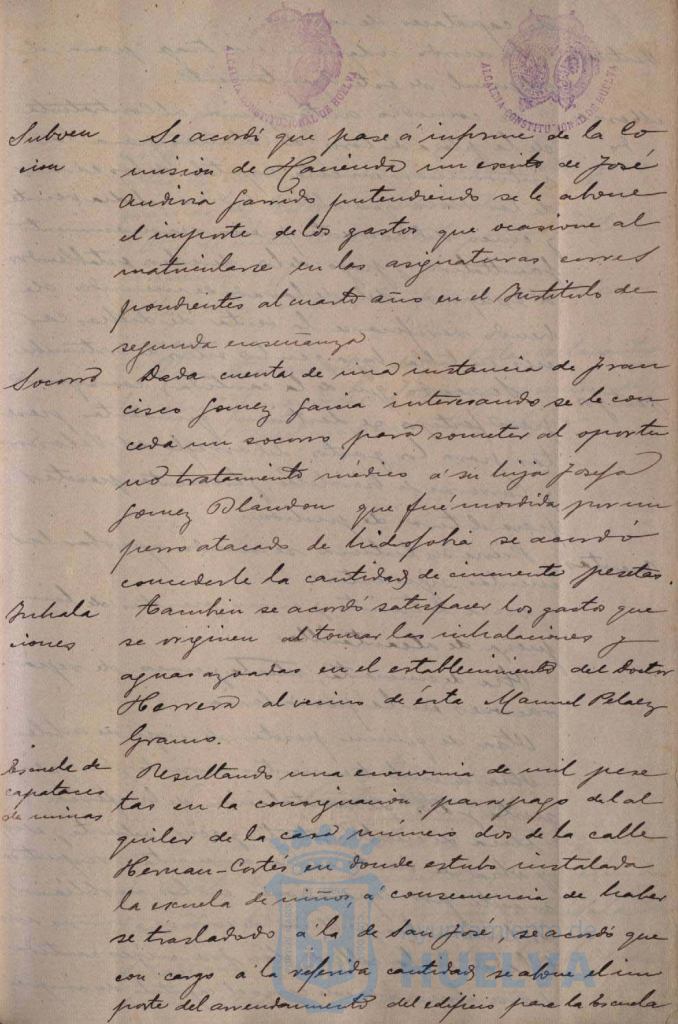 ALCALDIA CONSTITUCIONAL DE HUELVA
ALCALDIA CONSTITUCIONAL DE HUELVA
Subven
cion
Se acordó que pase á informe de la Co
mision de Hacienda un escrito de José
Andivia Garrido pretendiendo se le abone
el importe de los gastos que ocasione al
matricularse en las asignaturas corres
pondientes al cuarto año en el Instituto de
segunda enseñanza
Socorro
Dada cuenta de una instancia de Fran
cisco Gomez Garcia interesando se le con
ceda un socorro para someter al oportu
no tratamiento médico á su hija Josefa
Gomez Blandon que fué mordida por un
perro atacado de hidrofobia se acordó
concederle la cantidad de cincuenta pesetas.
Inhala
ciones
Tambien se acordó satisfacer los gastos que
se originen al tomar las inhalaciones y
aguas azoadas en el establecimiento del Doctor
Herrera al vecino de ésta Manuel Pelaez
Escuela de
capataces
de minas
Resultando una economia de mil pese
tas en la consignacion para pago del al
quiler de la casa número dos de la calle
Hernan-Cortés en donde estubo instalada
la escuela de niños, á consecuencia de haber
se trasladado á la de San José, se acordó que
con cargo á la referida cantidad se abone el im
porte del arrendamiento del edificio para la Escuela
Ayuntamiento de
HUELVA